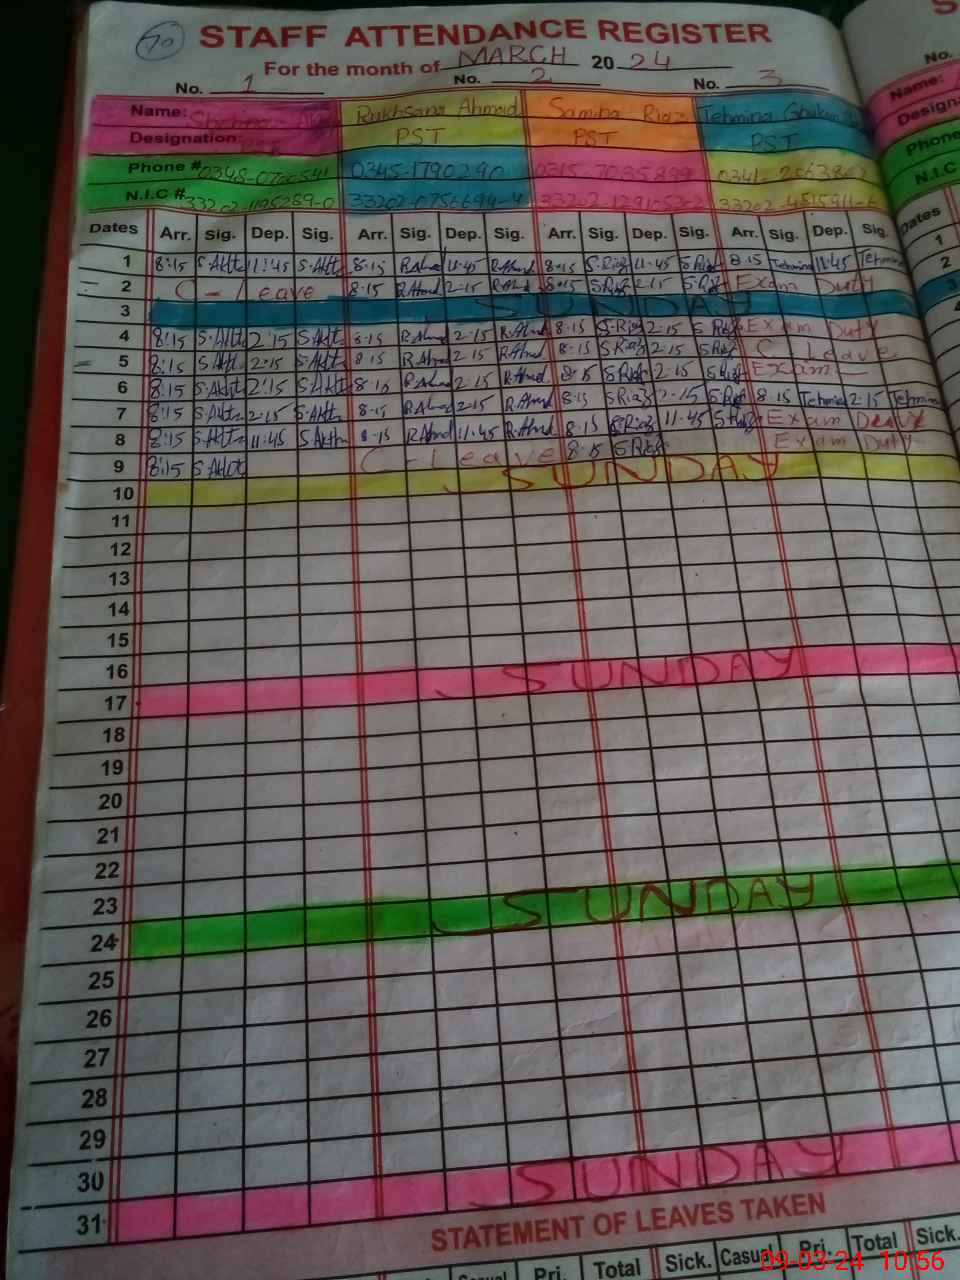 70
STAFF ATTENDANCE REGISTER
For the month of MARCH 2024
No. 1 No. 2 No. 3
Name: Rukhsana Ahmad Samina Riaz Tehmina
Designation: PST PST PST
Phone # 0345-1790290 0315-7035899
N.I.C # 33202-1195289-0 33202-0756694-4
Dates Arr. Sig. Dep. Sig. Arr. Sig. Dep. Sig. Arr. Sig. Dep. Sig. Arr. Sig. Dep. Sig.
1 8:15 S.Akht 11:45 S.Akht 8-15 R.Ahmd 11-45 R.Ahmd 8-15 S.Riaz 11-45 S.Riaz 8 15 Tehmina 11:45 Tehmina
2 C-leave 8-15 R.Ahmd 2-15 R.Ahmd 8-15 S.Riaz 2-15 S.Riaz Exam Duty
3 SUNDAY
4 8:15 S.Akht 2:15 S.Akht 8-15 R.Ahmd 2-15 R.Ahmd 8-15 S.Riaz 2-15 S.Riaz Exam Duty
5 8:15 S.Akht 2:15 S.Akht 8-15 R.Ahmd 2-15 R.Ahmd 8-15 S.Riaz 2-15 S.Riaz C Leave
6 8:15 S.Akht 2:15 S.Akht 8-15 R.Ahmd 2-15 R.Ahmd 8-15 S.Riaz 2-15 S.Riaz Exam
7 8:15 S.Akht 2:15 S.Akht 8-15 R.Ahmd 2-15 R.Ahmd 8-15 S.Riaz 2-15 S.Riaz 8-15 Tehmina 2-15 Tehmina
8 8:15 S.Akht 11:45 S.Akht 8-15 R.Ahmd 11-45 R.Ahmd 8-15 S.Riaz 11-45 S.Riaz Exam
9 8:15 S.Akht C-leave 8-15 S.Riaz Exam Duty
10 SUNDAY
11
12
13
14
15
16
17 SUNDAY
18
19
20
21
22
23
24 SUNDAY
25
26
27
28
29
30
31 SUNDAY
STATEMENT OF LEAVES TAKEN
Casual Pri. Total Sick. Casual Pri. Total Sick.
09-03-24 10:56
No.
Name:
Phone
N.I.C
Dates
1
2
3